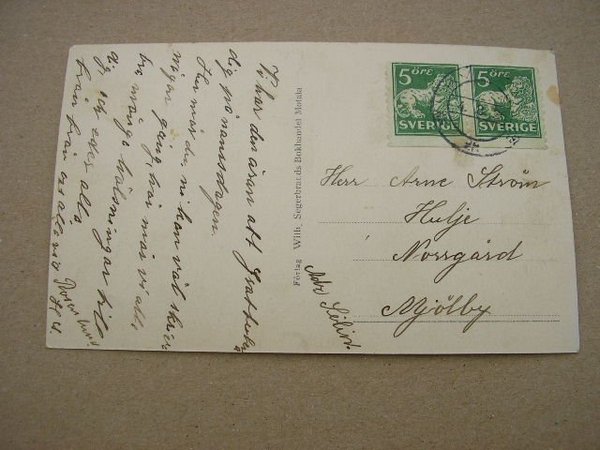 Vi har den äran att Gratulera
dig på namnsdagen.
Hur mår du, ni kan väl skriva
någon gång, här mår vi alla
bra många hälsningar till
dig och eder alla
från från oss alla
Förlag Wilh. Segerbrands Bokhandel Motala
5 ÖRE
SVERIGE
5 ÖRE
SVERIGE
Herr Arne Ström
Hulje
Norrgård
Mjölby